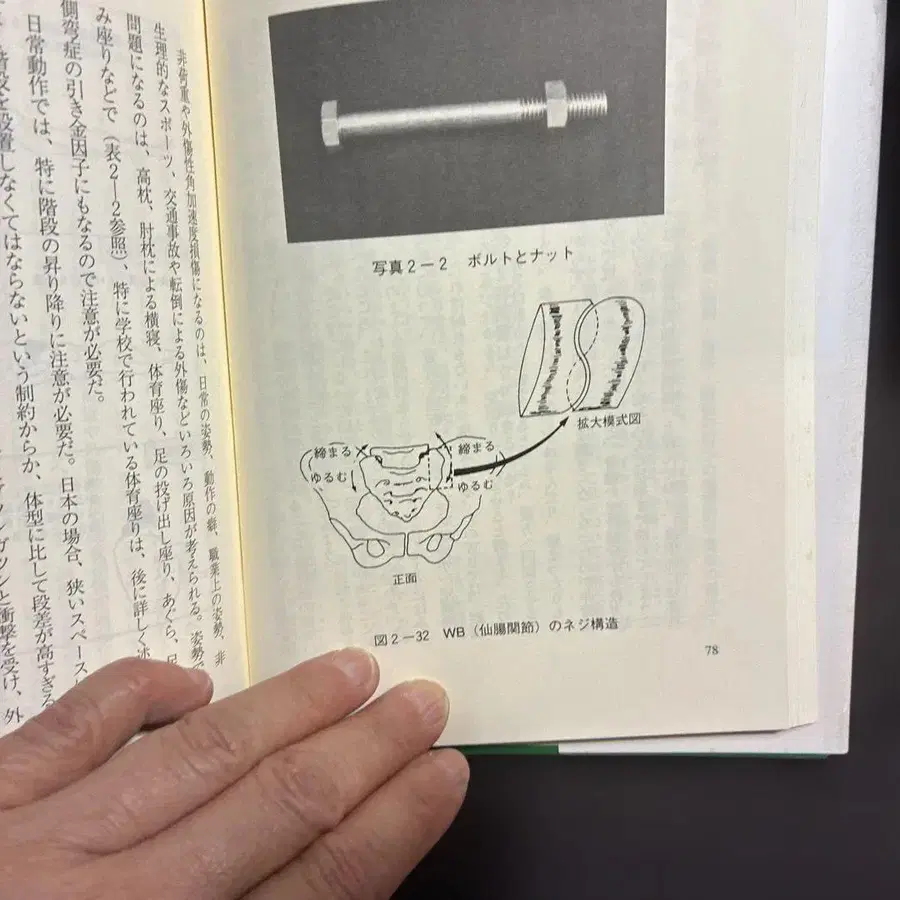 写真2－2　ボルトとナット
拡大模式図
締まる
締まる
ゆるむ
ゆるむ
正面
図2－32　WB（仙腸関節）のネジ構造
78
非荷重や外傷性角加速度損傷になるのは、日常の姿勢、動作の癖、職業上の姿勢、非
生理的なスポーツ、交通事故や転倒による外傷などいろいろ原因が考えられる。姿勢で
問題になるのは、高枕、肘枕による横寝、体育座り、足の投げ出し座り、あぐら、足
み座りなどで（表2―2参照）、特に学校で行われている体育座りは、後に詳しく述
側弯症の引き金因子にもなるので注意が必要だ。
日常動作では、特に階段の昇り降りに注意が必要だ。日本の場合、狭いスペース
階段を設置しなくてはならないという制約からか、体型に比して段差が高すぎる
ガツンと衝撃を受け、外